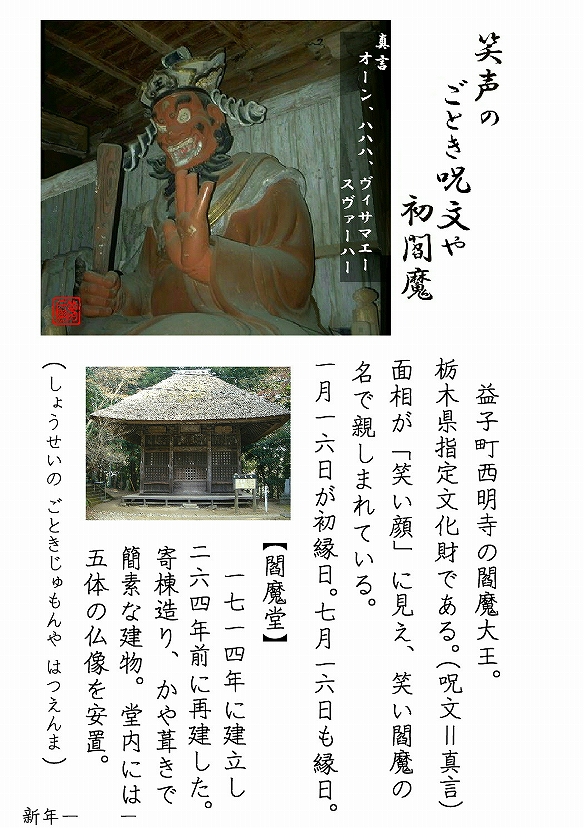 笑声の
ごとき呪文や
初閻魔
真言
オーン、ハハハ、ヴィサマエー
スヴァーハー
益子町西明寺の閻魔大王。
栃木県指定文化財である。(呪文＝真言)
面相が「笑い顔」に見え、笑い閻魔の
名で親しまれている。
一月一六日が初縁日。七月一六日も縁日。
【閻魔堂】
一七一四年に建立し
二六四年前に再建した。
寄棟造り、かや葺きで
簡素な建物。堂内には
五体の仏像を安置。
(しょうせいの ごときじゅもんや はつえんま)
新年一 一